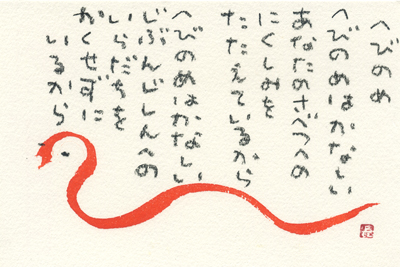 へびのめ
へびのめはかなしい
あなたのさべつへの
にくしみを
たたえているから
へびのめはかなしい
じぶんじしんへの
いらだちを
かくせずに
いるから